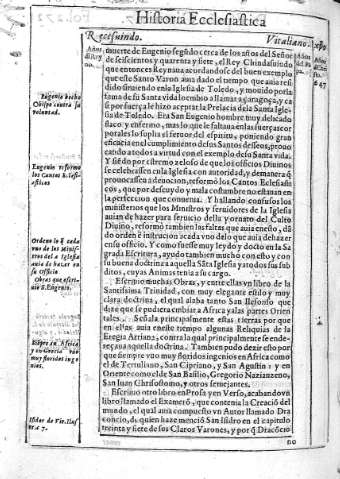 Historia Ecclesiastica
Recesuindo. Vitaliano.
muerte de Eugenio segũdo cerca de los años del Señor
de seiscientos y quarenta y siete, el Rey Chindasuindo
que entonces Reynaua acordandose del buen exemplo
que este Santo Varon auia dado el tiempo que auia resi
dido siruiendo en la Iglesia de Toledo, y mouido por la
fama de su Santa vida lo embio a llamar a Zaragoça, y ca
si por fuerça le hizo aceptar la Prelacia de la Santa Igle
sia de Toledo. Era San Eugenio hombre muy delicado
flaco, y enfermo, mas lo que le faltaua en las fuerças cor
porales lo suplia el feruor del espiritu, poniendo gran
eficacia en el cumplimiento de sus Santos desseos, prouo
cando a todos a virtud con el exemplo de su Santa vida.
Y siẽdo por estremo zeloso de que los officios Diuinos
se celebrassen en la Iglesia con autoridad, y de manera q̃
prouocassen a deuocion, reformò los Cantos Eclesiasti
cos, que por descuydo y mala costumbre no estauan en
la perfection que conuenia. Y hallando confusos los
ministerios que los Ministros y seruidores de la Iglesia
auian de hazer para seruicio della y ornato del Culto
Diuino, reformò tambien las faltas que auia en esso, dã
do orden è instrucion a cada vno de lo que auia de hazer
en su officio. Y como fuesse muy leydo y docto en la Sa
grada Escritura, ayudò tambien mucho con esto y con
su buena doctrina a aquella Sãta Iglesia y a todos sus sub
ditos, cuyas Animas tenia a su cargo.
Escriuio muchas Obras, y entre ellas vn libro de la
Santissima Trinidad, con muy elegante estilo y muy
clara doctrina, el qual alaba tanto San Ilefonso que
dize que se pudiera embiar a Africa y a las partes Orien
tales. Señala principalmente estas tierras por que
en ellas auia en este tiempo algunas Reliquias de la
Eregia Arriana, contra la qual principalmente se ende-
reçaua aquella doctrina. Tambien pudo dezir esto por
que siempre vuo muy floridos ingenios en Africa como
el de Tertuliano, San Cipriano, y San Agustin: y en
Oriente como el de San Basilio, Gregorio Nazianzeno,
San Iuan Chrisostomo, y otros semejantes.
Escriuio otro libro en Prosa y en Verso, acabando vn
libro llamado el Exametõ, que contenia la Creaciõ del
mundo, el qual auia compuesto vn Autor llamado Dra
concio, de quien haze mencion San Isidro en el capitulo
treinta y siete de los Claros Varones, y por q̃ Dracõcio
no
Eugenio hecho
Obispo contra su
voluntad.
Eugenio reformò
los Cantos Eclesi-
asticos
Ordeno lo q̃ cada
vno de los Minis-
tros de la Iglesia
auia de hazer en
su officio
Obras que escri-
uio S. Eugenio.
Siẽpre en Africa
y en Grecia vuo
muy floridos inge
nios.
Isidor de Vir. Illus
c. 37.